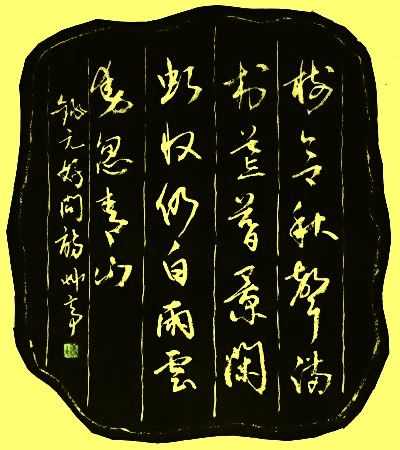 樹合秋聲滿
村荒暮景閑
虹收仍白雨雲
動忽青山
錄元好問詩